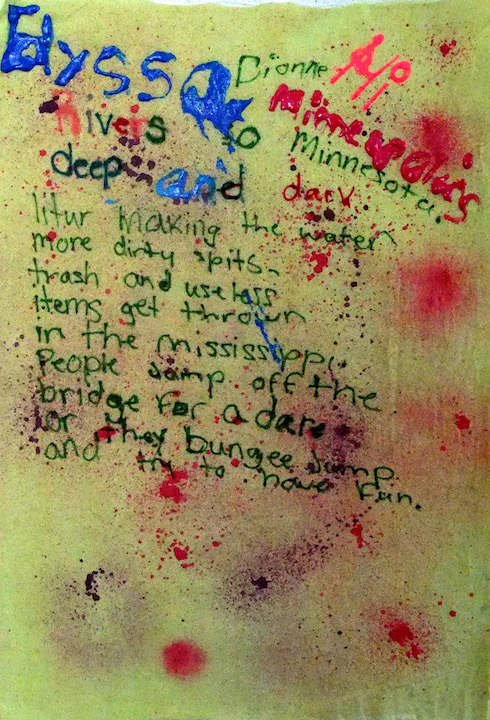 Elyssa Dionne A/o
Minneapolis
Rivers so Minnesota.
deep and dark
litur making the water
more dirty spits.
trash and useless
items get thrown
in the mississippi.
People Jump off the
bridge for a dare
or they bungee Jump
and try to have Fun.